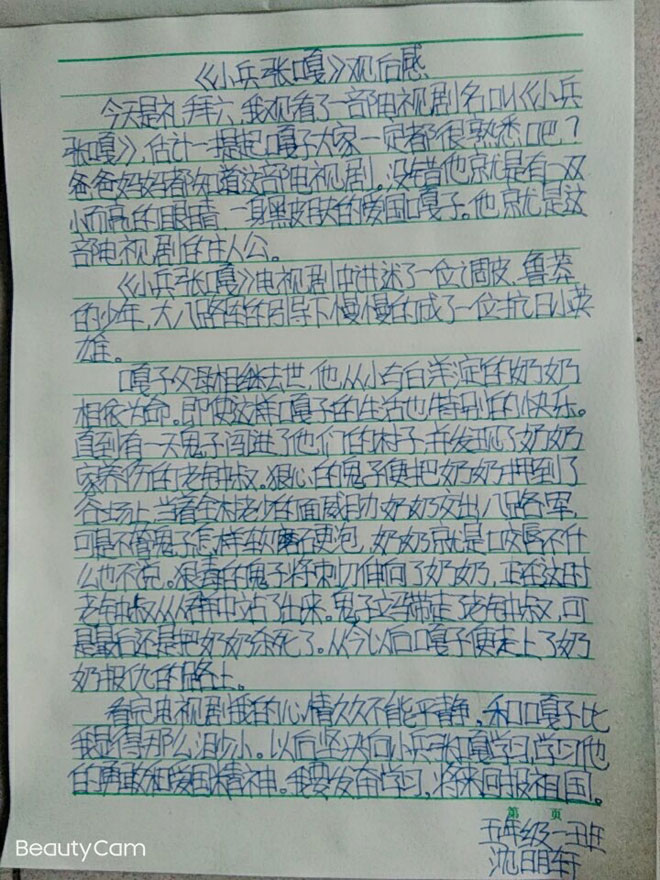 《小兵张嘎》观后感
今天是礼拜六，我观看了一部电视剧名叫《小兵
张嘎》，估计一提起嘎子大家一定都很熟悉吧？
爸爸妈妈都知道这部电视剧。没错他就是有一双
小而亮的眼睛，一身黑皮肤的爱国嘎子。他就是这
部电视剧的主人公。
《小兵张嘎》电视剧中讲述了一位调皮、鲁莽
的少年，大八路军的引导下慢慢的成了一位抗日小英
雄。
嘎子父母相继去世，他从小与白洋淀的奶奶
相依为命。即使这样嘎子的生活也特别的快乐。
直到有一天鬼子闯进了他们的村子，并发现了奶奶
家养伤的老钟叔。狠心的鬼子便把奶奶押到了
谷场上，当着全村老小的面威胁奶奶交出八路军，
可是不管鬼子怎样软磨硬泡，奶奶就是咬唇不什
么也不说。狠毒的鬼子将刺刀伸向了奶奶，正在这时
老钟叔从人群中站了出来。鬼子立马带走了老钟叔，可
是最后还是把奶奶杀死了。从今以后嘎子便走上了奶
奶报仇的路上。
看完电视剧我的心情久久不能平静，和嘎子比
我显得那么渺小。以后坚决向小兵张嘎学习，学习他
的勇敢和爱国精神。我要发奋学习，将来回报祖国。
第 页
五年级一班
沈明轩
BeautyCam